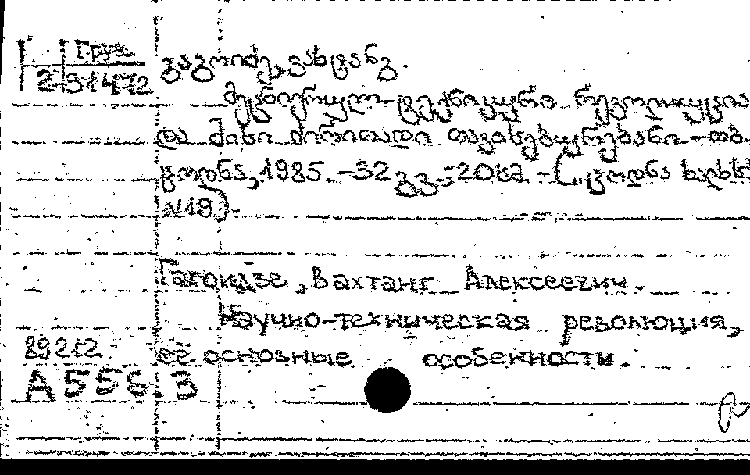 Груз
2|31472
გაგოიძე, ვახტანგ.
მეცნიერულ-ტექნიკური რევოლუცია
და მისი ძირითადი თავისებურებანი.-თბ.
ცოდნა, 1985. -32 გვ.-20სმ.-(„ცოდნა ხალხს
N19).
Гагоидзе, Вахтанг Алексеевич.
Научно-техническая революция,
её основные особенности.
89212
А 556.3